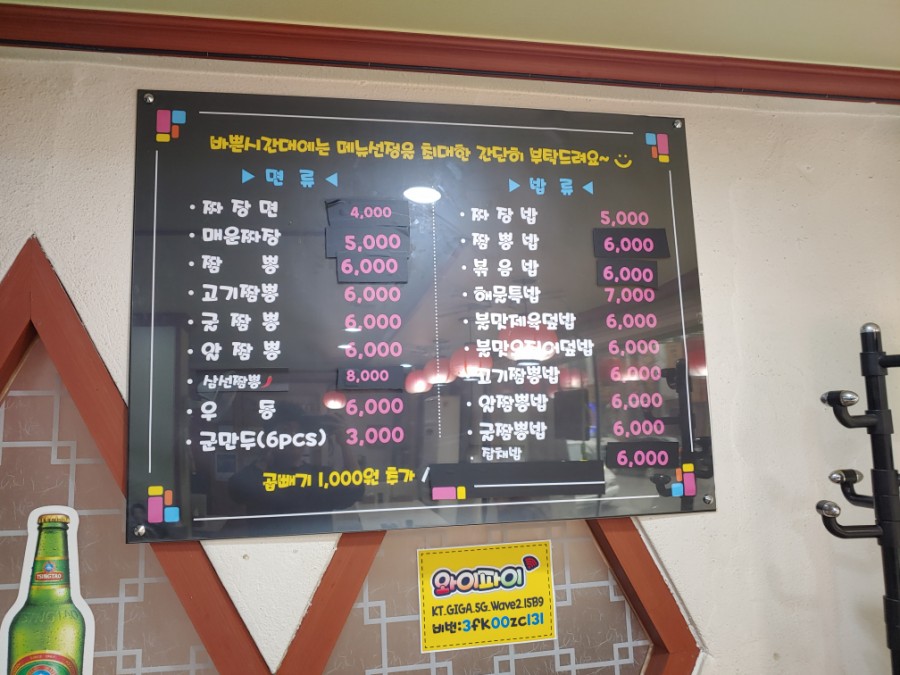 바쁜시간대에는 메뉴선정을 최대한 간단히 부탁드려요~
▶ 면 류 ◀
· 짜 장 면 4,000
· 매운짜장 5,000
· 짬 뽕 6,000
· 고기짬뽕 6,000
· 굴 짬 뽕 6,000
· 알 짬 뽕 6,000
· 삼선짬뽕 8,000
· 우 동 6,000
· 군만두(6pcs) 3,000
▶ 밥 류 ◀
· 짜 장 밥 5,000
· 짬 뽕 밥 6,000
· 볶 음 밥 6,000
· 해물특밥 7,000
· 불맛제육덮밥 6,000
· 불맛오징어덮밥 6,000
· 고기짬뽕밥 6,000
· 알짬뽕밥 6,000
· 굴짬뽕밥 6,000
· 잡채밥 6,000
곱빼기 1,000원 추가 /
와이파이
KT.GIGA.5G.Wave2.15B9
비번:3fk00zc131
TSINGTAO